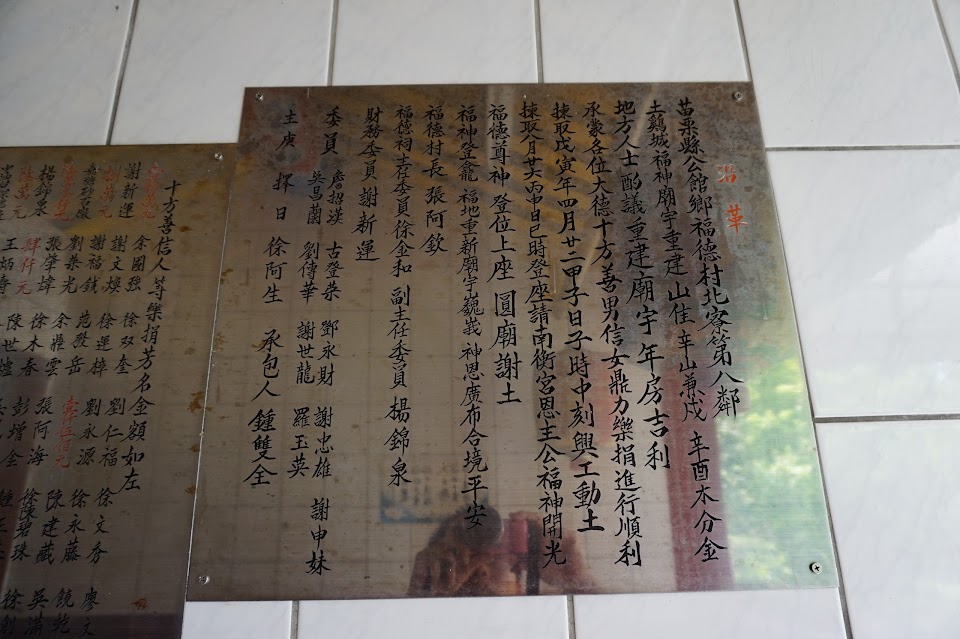 沿革
苗栗縣公館鄉福德村北寮第八鄰
土鷄城福神廟宇重建 山住辛山兼戍 辛酉木分金
地方人士酌議重建廟宇年房吉利
承蒙各位大德十方善男信女鼎力樂捐進行順利
揀取戊寅年四月廿二甲子日子時中刻興工動土
揀取八月廿六丙申日巳時登座請南衡宮恩主公福神開光
福德尊神 登位上座 圓廟謝土
福神登龕 福地重新廟宇巍峩 神恩廣布合境平安
福德村長 張阿欽
福德祠主任委員徐金和 副主任委員 楊錦泉
財務委員 謝新運
委員 詹招漢 古登榮 鄧永財 謝忠雄 謝申妹
吳昌蘭 劉傳華 謝世龍 羅玉英
土庚 擇日 徐阿生 承包人 鍾雙全
十方善信人等樂捐芳名金額如左
謝新運 余國強 徐双奎 劉仁福 徐文秀 廖文
謝文煥 徐運梓 劉永源 徐永藤 饒乾
謝福錢 范發岳 陳建藏 吳滿
劉恭光 余鼎雲 張阿海 徐陳碧珠 徐
楊錦泉 張肇煒 徐木春 彭增全
肆仟元 王炳奇 陳世爐